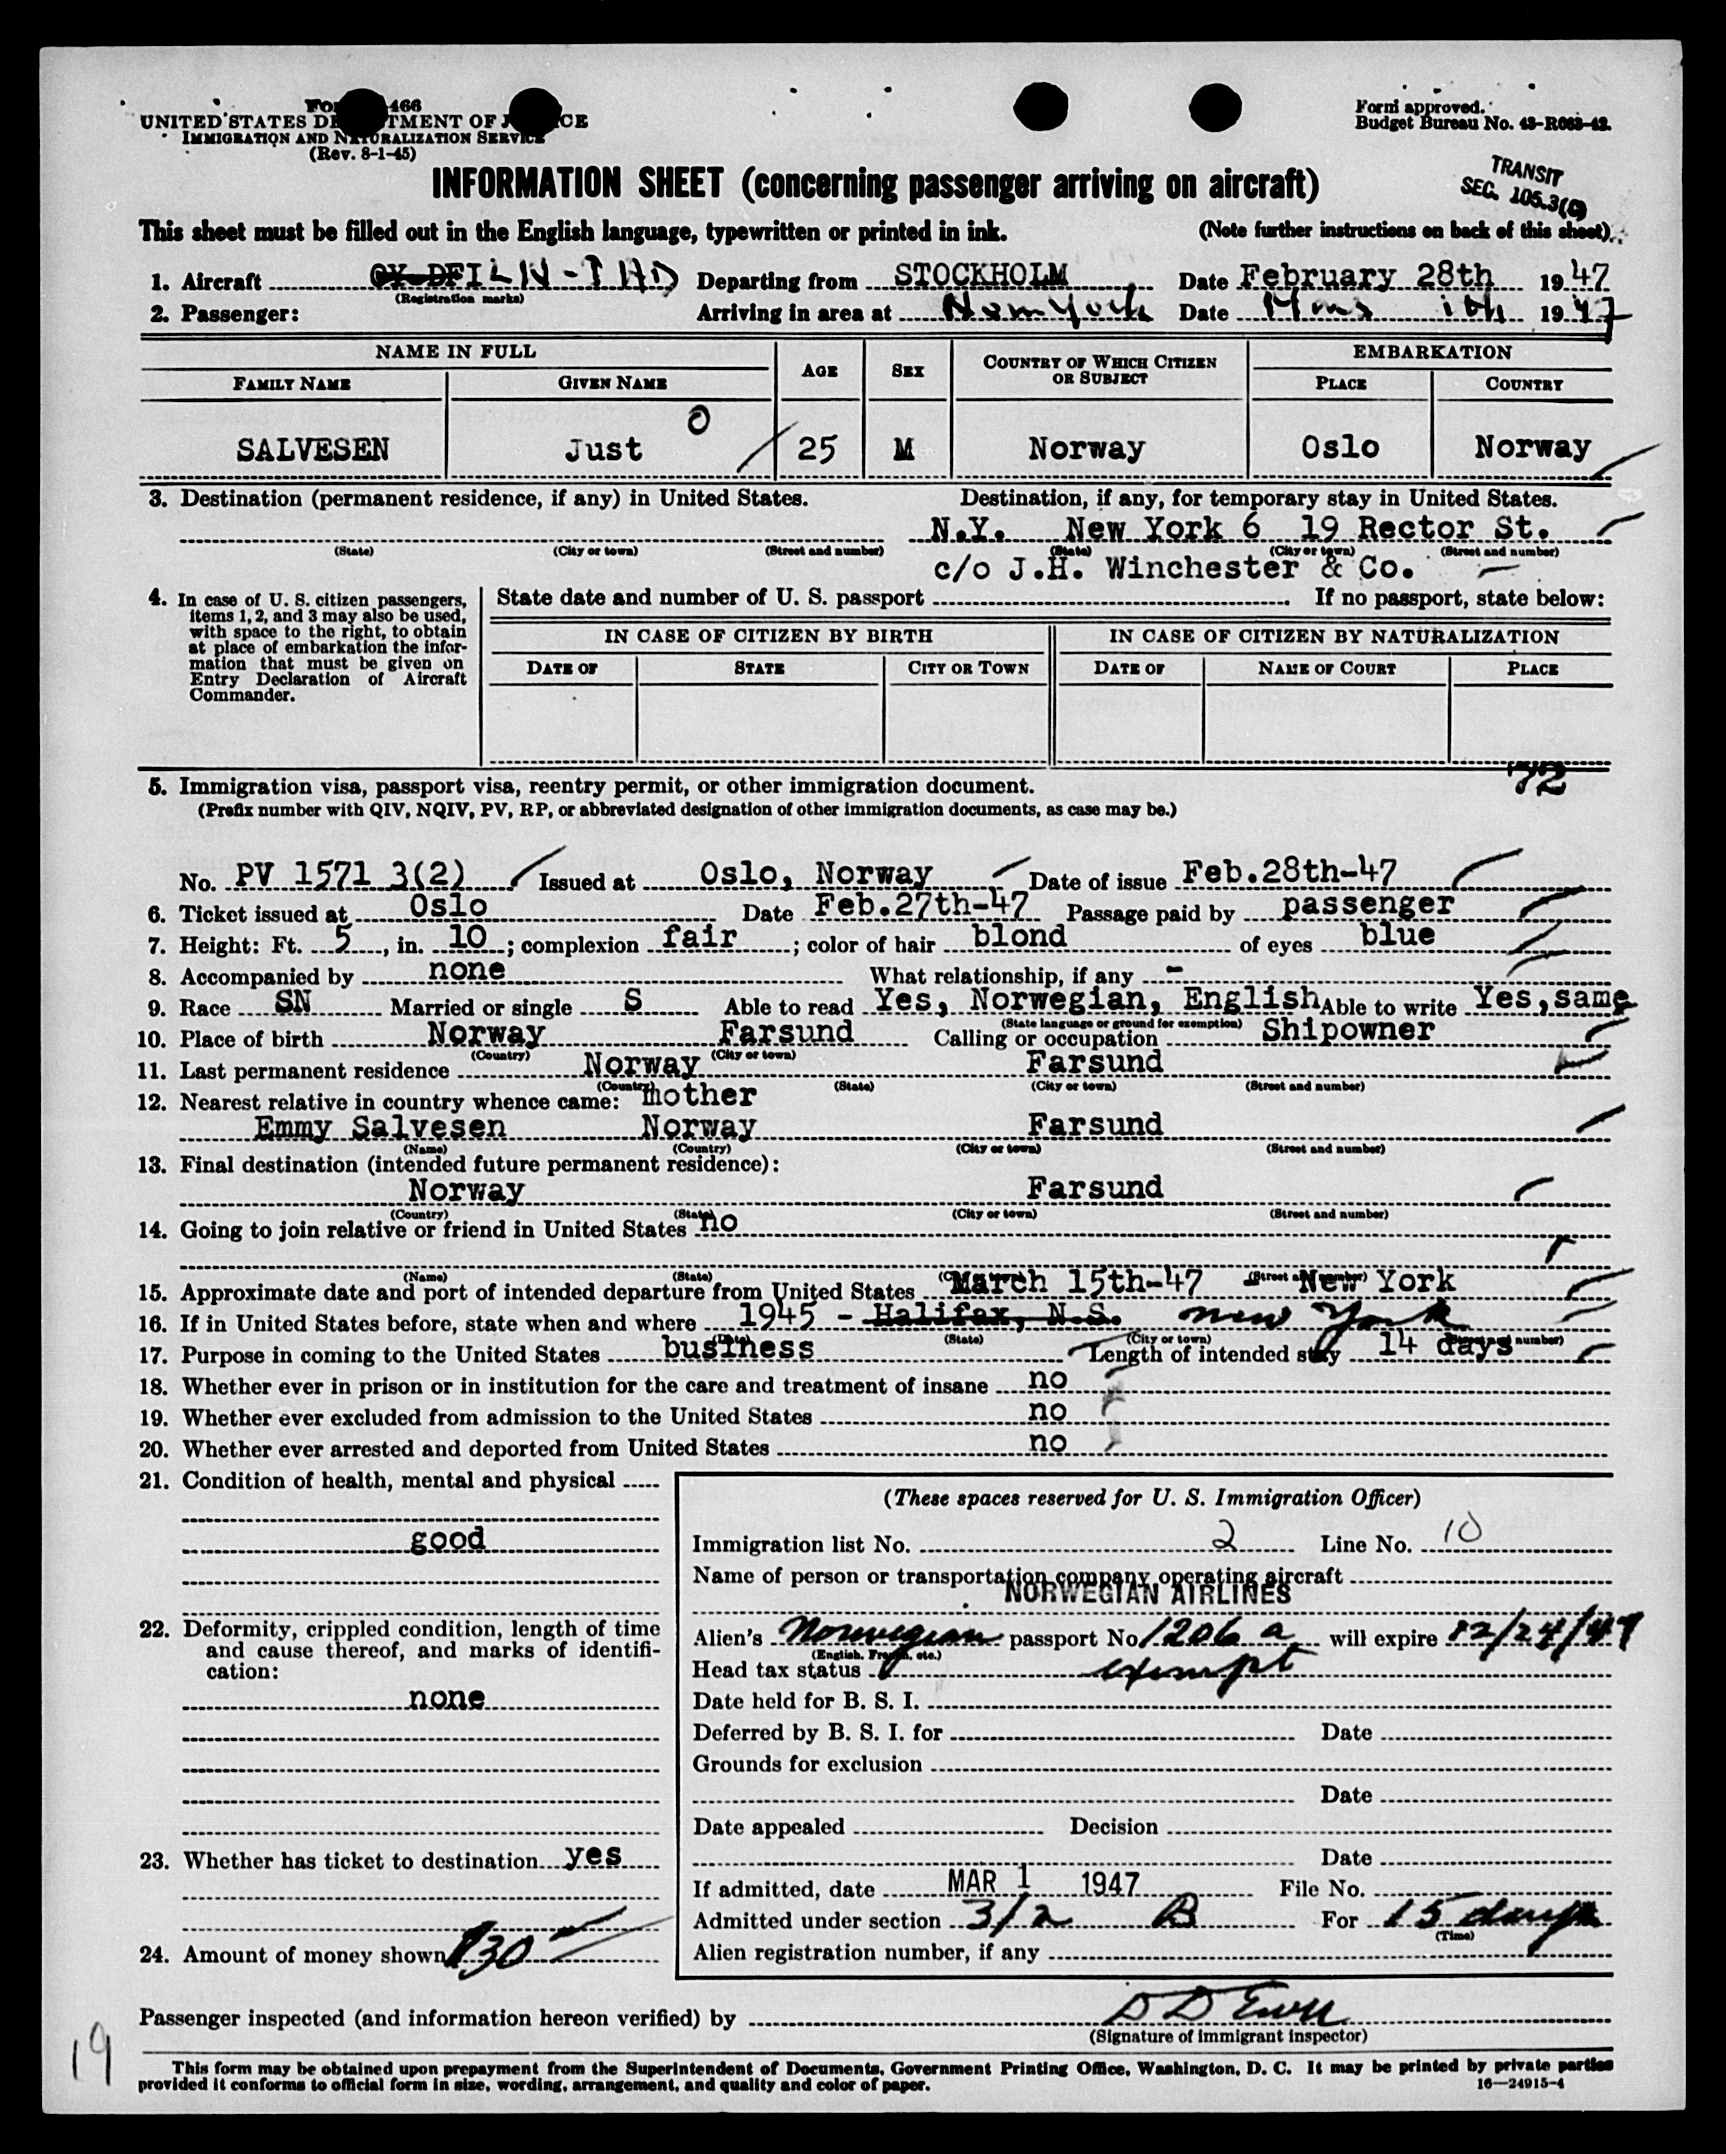 466
UNITED STATES DEPARTMENT OF JUSTICE
IMMIGRATION AND NATURALIZATION SERVICE
(Rev. 8-1-45)
Form approved.
Budget Bureau No. 43-R063-42.
INFORMATION SHEET (concerning passenger arriving on aircraft)
TRANSIT
SEC. 105.3(C)
This sheet must be filled out in the English language, typewritten or printed in ink. (Note further instructions on back of this sheet)
1. Aircraft OY-DFI LN-IAD Departing from STOCKHOLM Date February 28th 1947
(Registration marks)
2. Passenger: Arriving in area at New York Date 1947
NAME IN FULL AGE SEX COUNTRY OF WHICH CITIZEN OR SUBJECT EMBARKATION
FAMILY NAME GIVEN NAME PLACE COUNTRY
SALVESEN Just O 25 M Norway Oslo Norway
3. Destination (permanent residence, if any) in United States. Destination, if any, for temporary stay in United States.
N.Y. New York 6 19 Rector St.
(State) (City or town) (Street and number) (State) (City or town) (Street and number)
c/o J.H. Winchester & Co.
4. In case of U. S. citizen passengers, items 1, 2, and 3 may also be used, with space to the right, to obtain at place of embarkation the information that must be given on Entry Declaration of Aircraft Commander.
State date and number of U. S. passport If no passport, state below:
IN CASE OF CITIZEN BY BIRTH IN CASE OF CITIZEN BY NATURALIZATION
DATE OF STATE CITY OR TOWN DATE OF NAME OF COURT PLACE
72
5. Immigration visa, passport visa, reentry permit, or other immigration document.
(Prefix number with QIV, NQIV, PV, RP, or abbreviated designation of other immigration documents, as case may be.)
No. PV 1571 3(2) Issued at Oslo, Norway Date of issue Feb.28th-47
6. Ticket issued at Oslo Date Feb.27th-47 Passage paid by passenger
7. Height: Ft. 5, in. 10; complexion fair; color of hair blond of eyes blue
8. Accompanied by none What relationship, if any -
9. Race SN Married or single S Able to read Yes, Norwegian, English Able to write Yes, same
(State language or ground for exemption)
10. Place of birth Norway Farsund Calling or occupation Shipowner
(Country) (City or town)
11. Last permanent residence Norway Farsund
(Country) (State) (City or town) (Street and number)
12. Nearest relative in country whence came: mother
Emmy Salvesen Norway Farsund
(Name) (Country) (City or town) (Street and number)
13. Final destination (intended future permanent residence):
Norway Farsund
(Country) (State) (City or town) (Street and number)
14. Going to join relative or friend in United States no
(Name) (State) (City or town) (Street and number)
15. Approximate date and port of intended departure from United States March 15th-47 New York
16. If in United States before, state when and where 1945 - Halifax, N.S. New York
(Date) (State) (City or town) (Street and number)
17. Purpose in coming to the United States business Length of intended stay 14 days
18. Whether ever in prison or in institution for the care and treatment of insane no
19. Whether ever excluded from admission to the United States no
20. Whether ever arrested and deported from United States no
21. Condition of health, mental and physical
good
22. Deformity, crippled condition, length of time and cause thereof, and marks of identification:
none
23. Whether has ticket to destination yes
24. Amount of money shown $30
(These spaces reserved for U. S. Immigration Officer)
Immigration list No. 2 Line No. 10
Name of person or transportation company operating aircraft
NORWEGIAN AIRLINES
Alien's Norwegian passport No 1206 a will expire 12/24/47
(English, French, etc.)
Head tax status exempt
Date held for B. S. I.
Deferred by B. S. I. for Date
Grounds for exclusion
Date
Date appealed Decision
Date
If admitted, date MAR 1 1947 File No.
Admitted under section 3/2 B For 15 days
(Time)
Alien registration number, if any
Passenger inspected (and information hereon verified) by D D Ewell
(Signature of immigrant inspector)
19
This form may be obtained upon prepayment from the Superintendent of Documents, Government Printing Office, Washington, D. C. It may be printed by private parties
provided it conforms to official form in size, wording, arrangement, and quality and color of paper.
16—24915-4